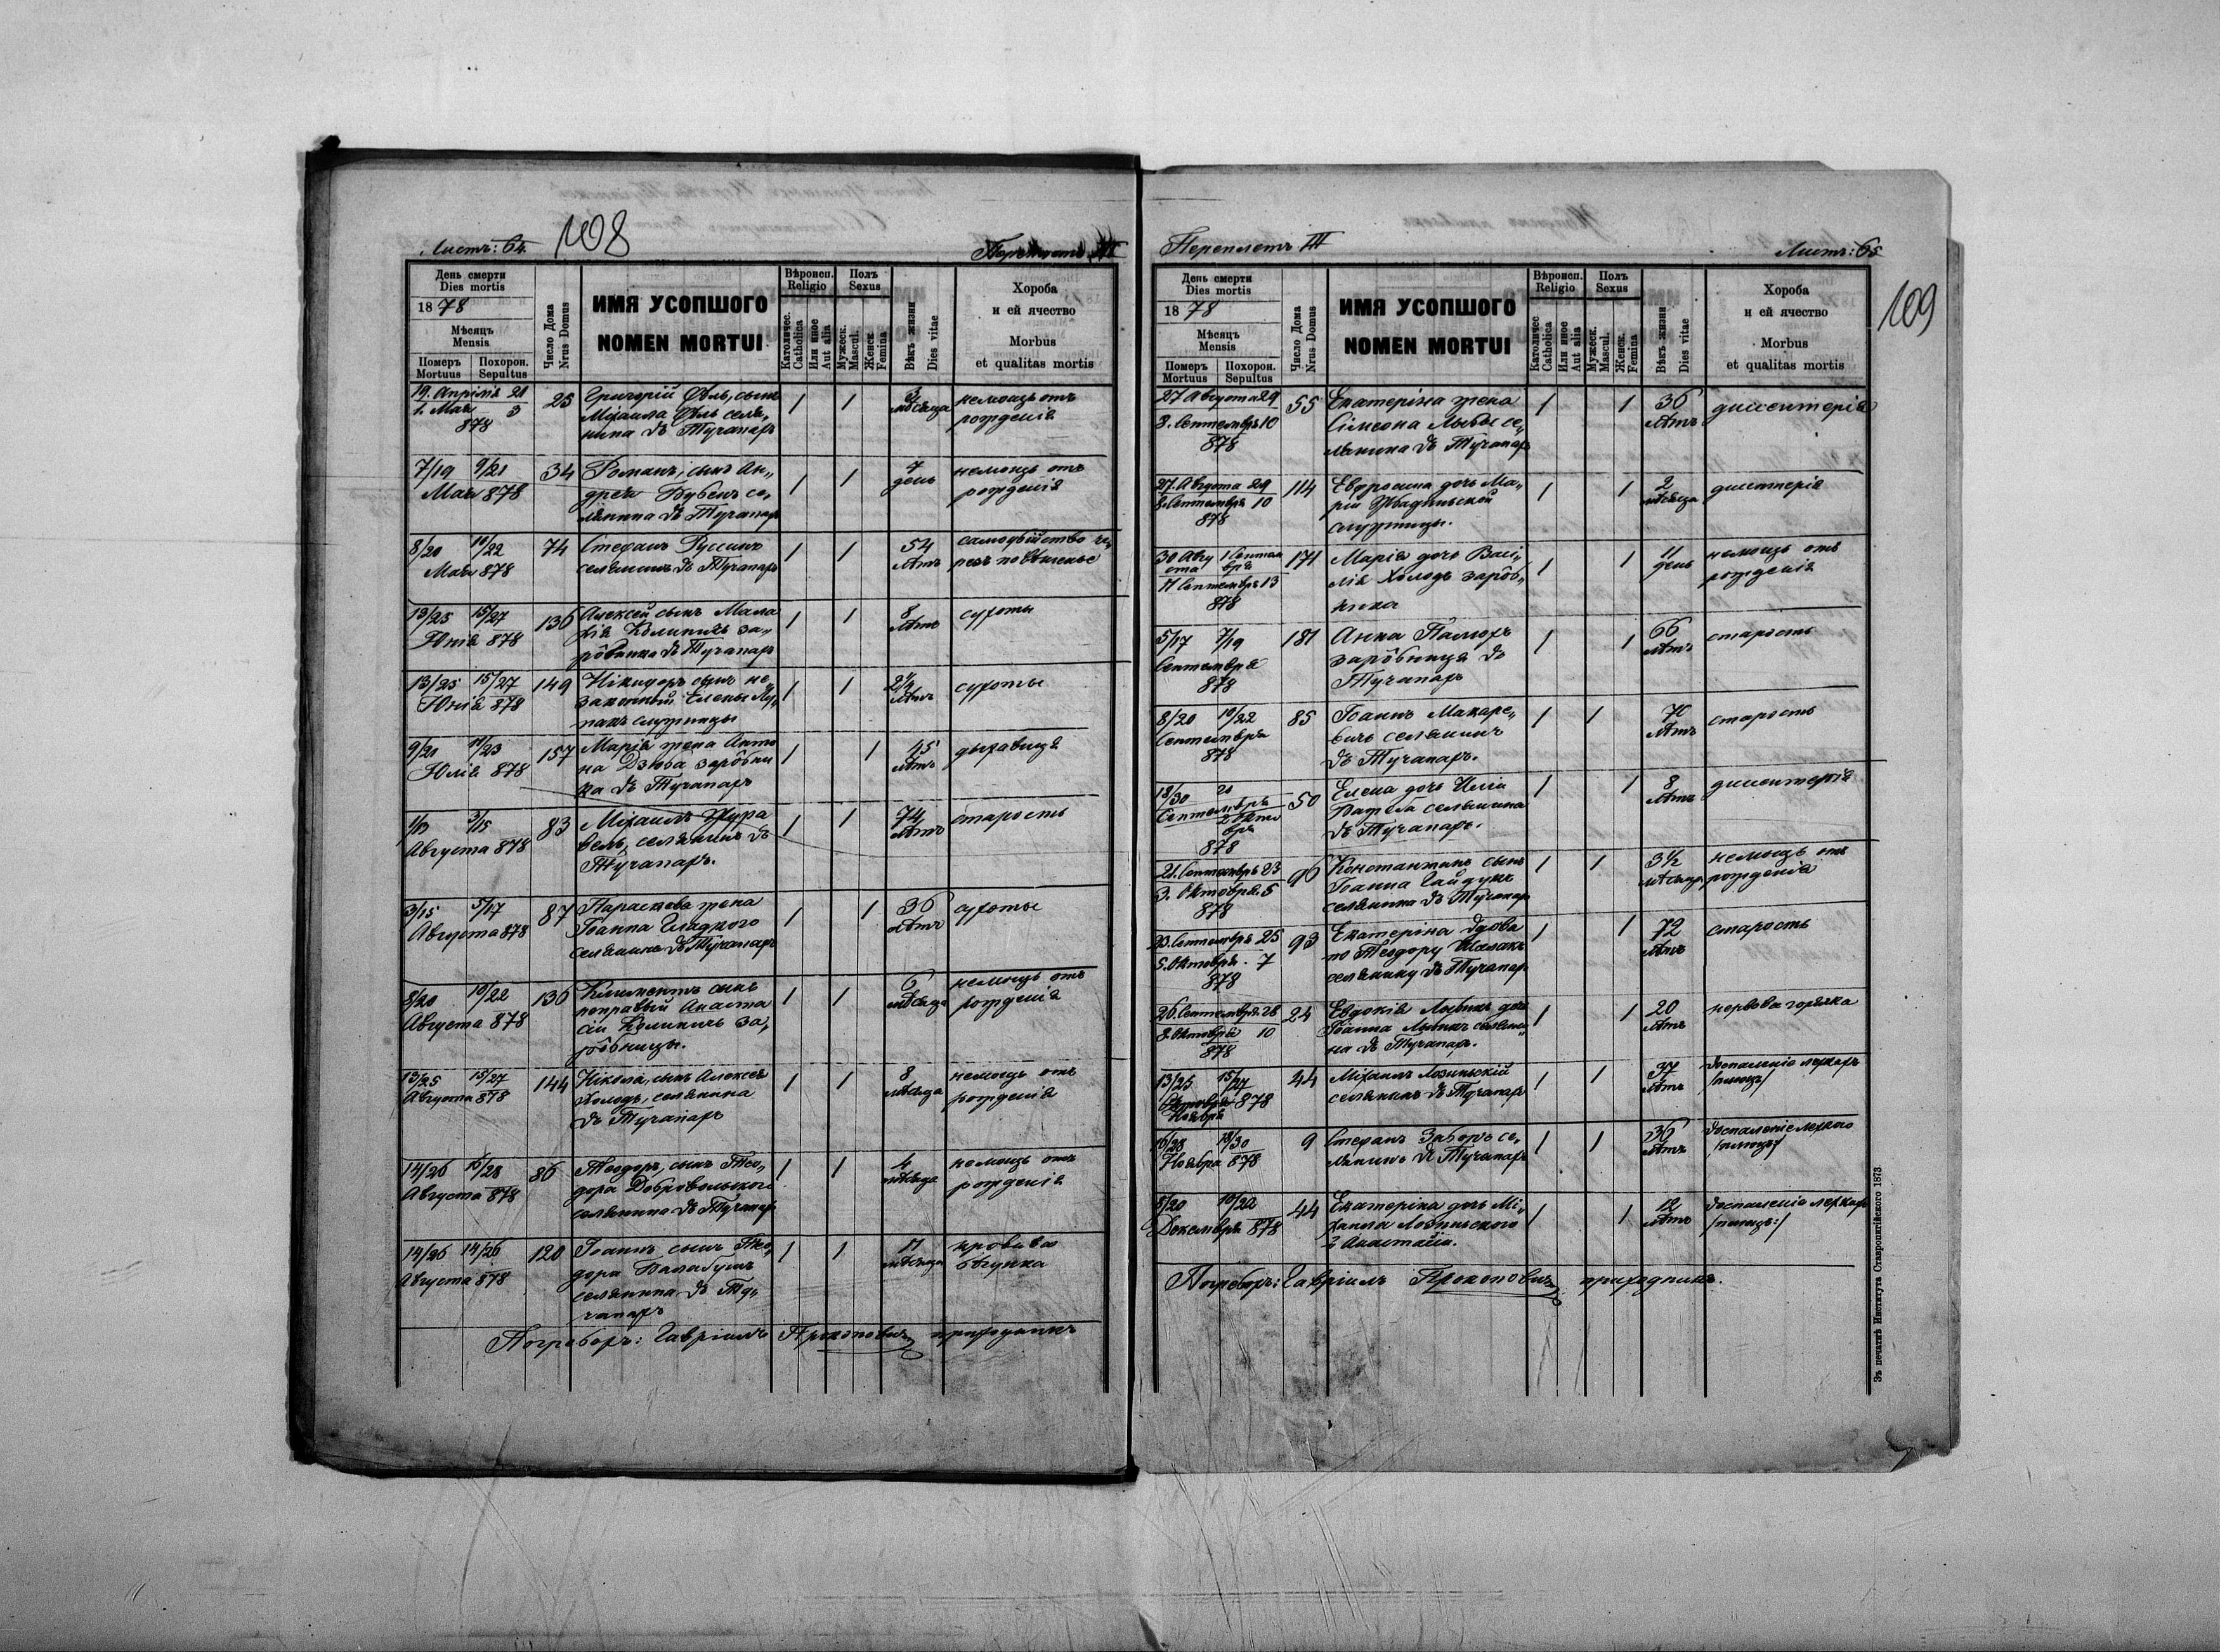 Листъ: 64.
108
День смерти
Dies mortis
1878
Мѣсяцъ
Mensis
Померъ
Mortuus
Похорон.
Sepultus
Число Дома
Nrus Domus
ИМЯ УСОПШОГО
NOMEN MORTUI
Вѣроисп.
Religio
Католичес.
Catholica
Или иное
Aut alia
Полъ
Sexus
Мужеск.
Mascul.
Женск.
Femina
Вѣкъ жизни
Dies vitae
Хороба
и ей ячество
Morbus
et qualitas mortis
19. Апріля 21
1. Мая 3
878
25
Григорій
сынъ
Михаила
селя„
нина въ Тучапахъ
1 1
мѣсяца
немощь отъ
рожденія
7/19 9/21
Мая 878
34
Романъ, сынъ Ан„
дрея Бубенъ се„
лянина въ Тучапахъ
1 1
7
день
немощь отъ
рожденія
8/20 10/22
Мая 878
74
Стефанъ Русинъ
селянинъ въ Тучапахъ
1 1
54
лѣтъ
самоубійство че„
резъ повѣшенье
13/25 15/27
Юнія 878
136
Алексей сынъ Мала
хія Колиничъ за„
рôбника въ Тучапахъ
1 1
8
лѣтъ
сухоты
13/25 15/27
Юнія 878
149
Никифоръ сынъ не„
законный Елены
служницы
1 1
2½
лѣтъ
сухоты
9/21 11/23
Юлія 878
157
Марія жена Анто
на Дзюба зарôбни
ка въ Тучапахъ
1 1
45
лѣтъ
дыхавица
1/13 3/15
Августа 878
83
Михаилъ Жура
вель, селянинъ въ
Тучапахъ.
1 1
74
лѣтъ
старость
3/15 5/17
Августа 878
87
Параскева жена
Іоанна Гладкого
селянина въ Тучапахъ
1 1
36
лѣтъ
сухоты
8/20 10/22
Августа 878
136
Климентъ сынъ
неправый Анаста
сіи Колиничъ за„
рôбницы.
1 1
6
мѣсяца
немощь отъ
рожденія
13/25 15/27
Августа 878
144
Никола, сынъ Алексея
Холодъ, селянина
въ Тучапахъ
1 1
8
мѣсяца
немощь отъ
рожденія
14/26
Августа 878
86
Теодоръ, сынъ Тео„
дора Добровольского
селянина въ Тучапахъ
1 1
4
мѣсяца
немощь отъ
рожденія
14/26 14/26
Августа 878
120
Іоаннъ сынъ Тео„
дора Балабухъ
селянина въ Ту„
чапахъ
1 1
11
мѣсяца
кровава
бѣгунка
Погребохъ: Гавріилъ Прокоповичъ приходникъ
Переплетъ III
Листъ: 65
109
День смерти
Dies mortis
1878
Мѣсяцъ
Mensis
Померъ
Mortuus
Похорон.
Sepultus
Число Дома
Nrus Domus
ИМЯ УСОПШОГО
NOMEN MORTUI
Вѣроисп.
Religio
Католичес
Catholica
Или иное
Aut alia
Полъ
Sexus
Мужеск.
Mascul.
Женск.
Femina
Вѣкъ жизни
Dies vitae
Хороба
и ей ячество
Morbus
et qualitas mortis
27 Августа 29
8. Септемвр. 10
878
55
Екатеріна жена
Сімеона
се„
лянина въ Тучапахъ
1 1
36
лѣтъ
диссентерія
27. Августа 29
8. Септемврія 10
878
114
Евфросина дочь Ма„
ріи
служницы.
1 1
2
мѣсяца
дисентерія
30 Авгу
ста
1 Септем
врія
11 Септемврія 13
878
171
Марія дочь Васі„
лія Холодъ зарôб„
ника
1 1
11
день
немощь отъ
рожденія
5/17 7/19
Септемврія
878
181
Анна
зарôбниця въ
Тучапахъ
1 1
66
лѣтъ
старость
8/20 10/22
Септемврія
878
85
Іоаннъ Макаре„
вичъ селянинъ
въ Тучапахъ.
1 1
70
лѣтъ
старость
18/30 20
Септемврія
2 Окто
врія
878
50
Елена дочь Иліи
селянина
въ Тучапахъ.
1 1
8
лѣтъ
дисентерія
21. Септемврія 23
3. Октоврія 5
878
96
Константинъ сынъ
Іоанна Гайдукъ
селянина въ Тучапахъ
1 1
3½
мѣсяца
немощь отъ
рожденія
23. Септемврія 25
5. Октоврія. 7
878
93
Екатеріна вдова
по Теодору Шлапакъ
селянину въ Тучапах
1 1
72
лѣтъ
старость
26. Септемврія 28
8. Октоврія 10
878
24
Евдокія
дочь
Іоанна
селяни„
на въ Тучапах.
1 1
20
лѣтъ
нервова горячка
13/25 15/27
878
Ноября
44
Михаилъ Лозиньскій
селянинъ въ Тучапахъ
1 1
37
лѣтъ
воспаленіе легкихъ
16/28 18/30
Ноября 878
9
Стефанъ Заборъ се„
лянинъ въ Тучапахъ
1 1
36
лѣтъ
воспаленіе легкого
8/20 10/22
Декемврія 878
44
Екатеріна дочь Ми„
хаила Лозиньского
и Анастасіи.
1 1
12
лѣтъ
воспаленіе легкихъ
Погребохъ: Гавріилъ Прокоповичъ приходникъ.
Зъ печатнѣ Института Ставропигійского 1873.